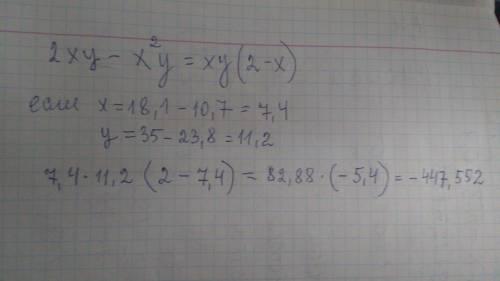 2xy - x²y = xy(2-x)
если x = 18,1 - 10,7 = 7,4
y = 35 - 23,8 = 11,2
7,4 · 11,2 (2 - 7,4) = 82,88 · (-5,4) = -447,552